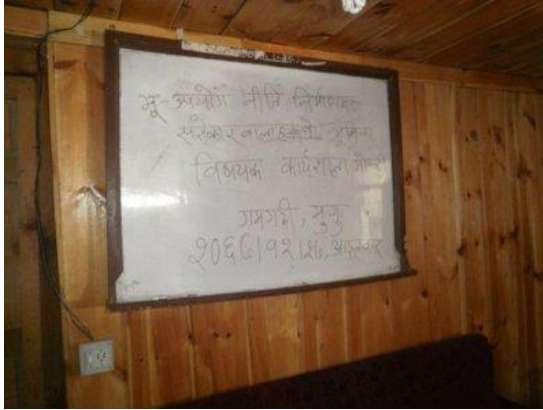 भू-उपयोग नीति निर्माणमा
सरोकारवालाहरूको भूमिका
विषयक कार्यशाला गोष्ठी
गमगढी, मुगु
२०६८।१२।२७, आइतबार